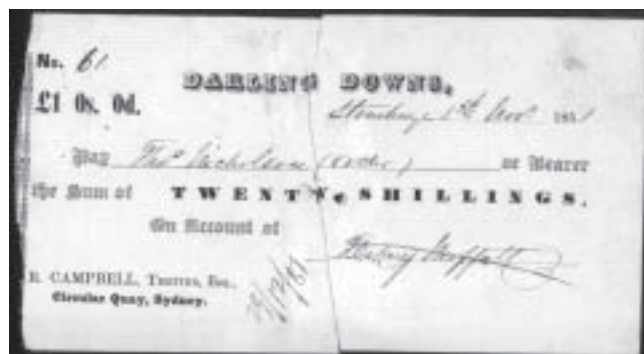 No. 61
DARLING DOWNS,
£1 0s. 0d.
1st Novr 1851
Pay Thos Nicholson (order) or Bearer
the Sum of TWENTY SHILLINGS.
On Account of
Moffatt
R. CAMPBELL, Tertius, Esq.,
Circular Quay, Sydney.